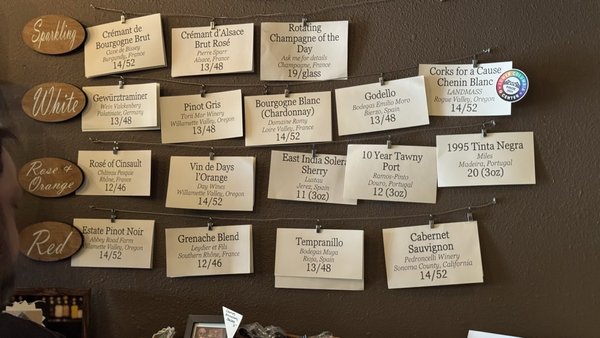 Sparkling
Crémant de
Bourgogne Brut
Cave de Bissey
Burgundy, France
14/52
Crémant d'Alsace
Brut Rosé
Pierre Sparr
Alsace, France
13/48
Rotating
Champagne of the
Day
Ask me for details
Champagne, France
19/glass
White
Gewürztraminer
Palatinate, Germany
13/48
Pinot Gris
Torii Mor Winery
Willamette Valley, Oregon
13/48
Bourgogne Blanc
(Chardonnay)
Domaine Romy
Loire Valley, France
14/52
Godello
Bodegas Emilio Moro
Bierzo, Spain
13/48
Corks for a Cause
Chenin Blanc
LANDMASS
Rogue Valley, Oregon
14/52
CENTER
Rosé &
Orange
Rosé of Cinsault
Château Pesquie
Rhône, France
12/46
Vin de Days
l'Orange
Day Wines
Willamette Valley, Oregon
14/52
East India Solera
Sherry
Lustau
Jerez, Spain
11 (3oz)
10 Year Tawny
Port
Ramos-Pinto
Douro, Portugal
12 (3oz)
1995 Tinta Negra
Miles
Madeira, Portugal
20 (3oz)
Red
Estate Pinot Noir
Abbey Road Farm
Willamette Valley, Oregon
14/52
Grenache Blend
Leydier et Fils
Southern Rhône, France
12/46
Tempranillo
Bodegas Muga
Rioja, Spain
13/48
Cabernet
Sauvignon
Pedroncelli Winery
Sonoma County, California
14/52